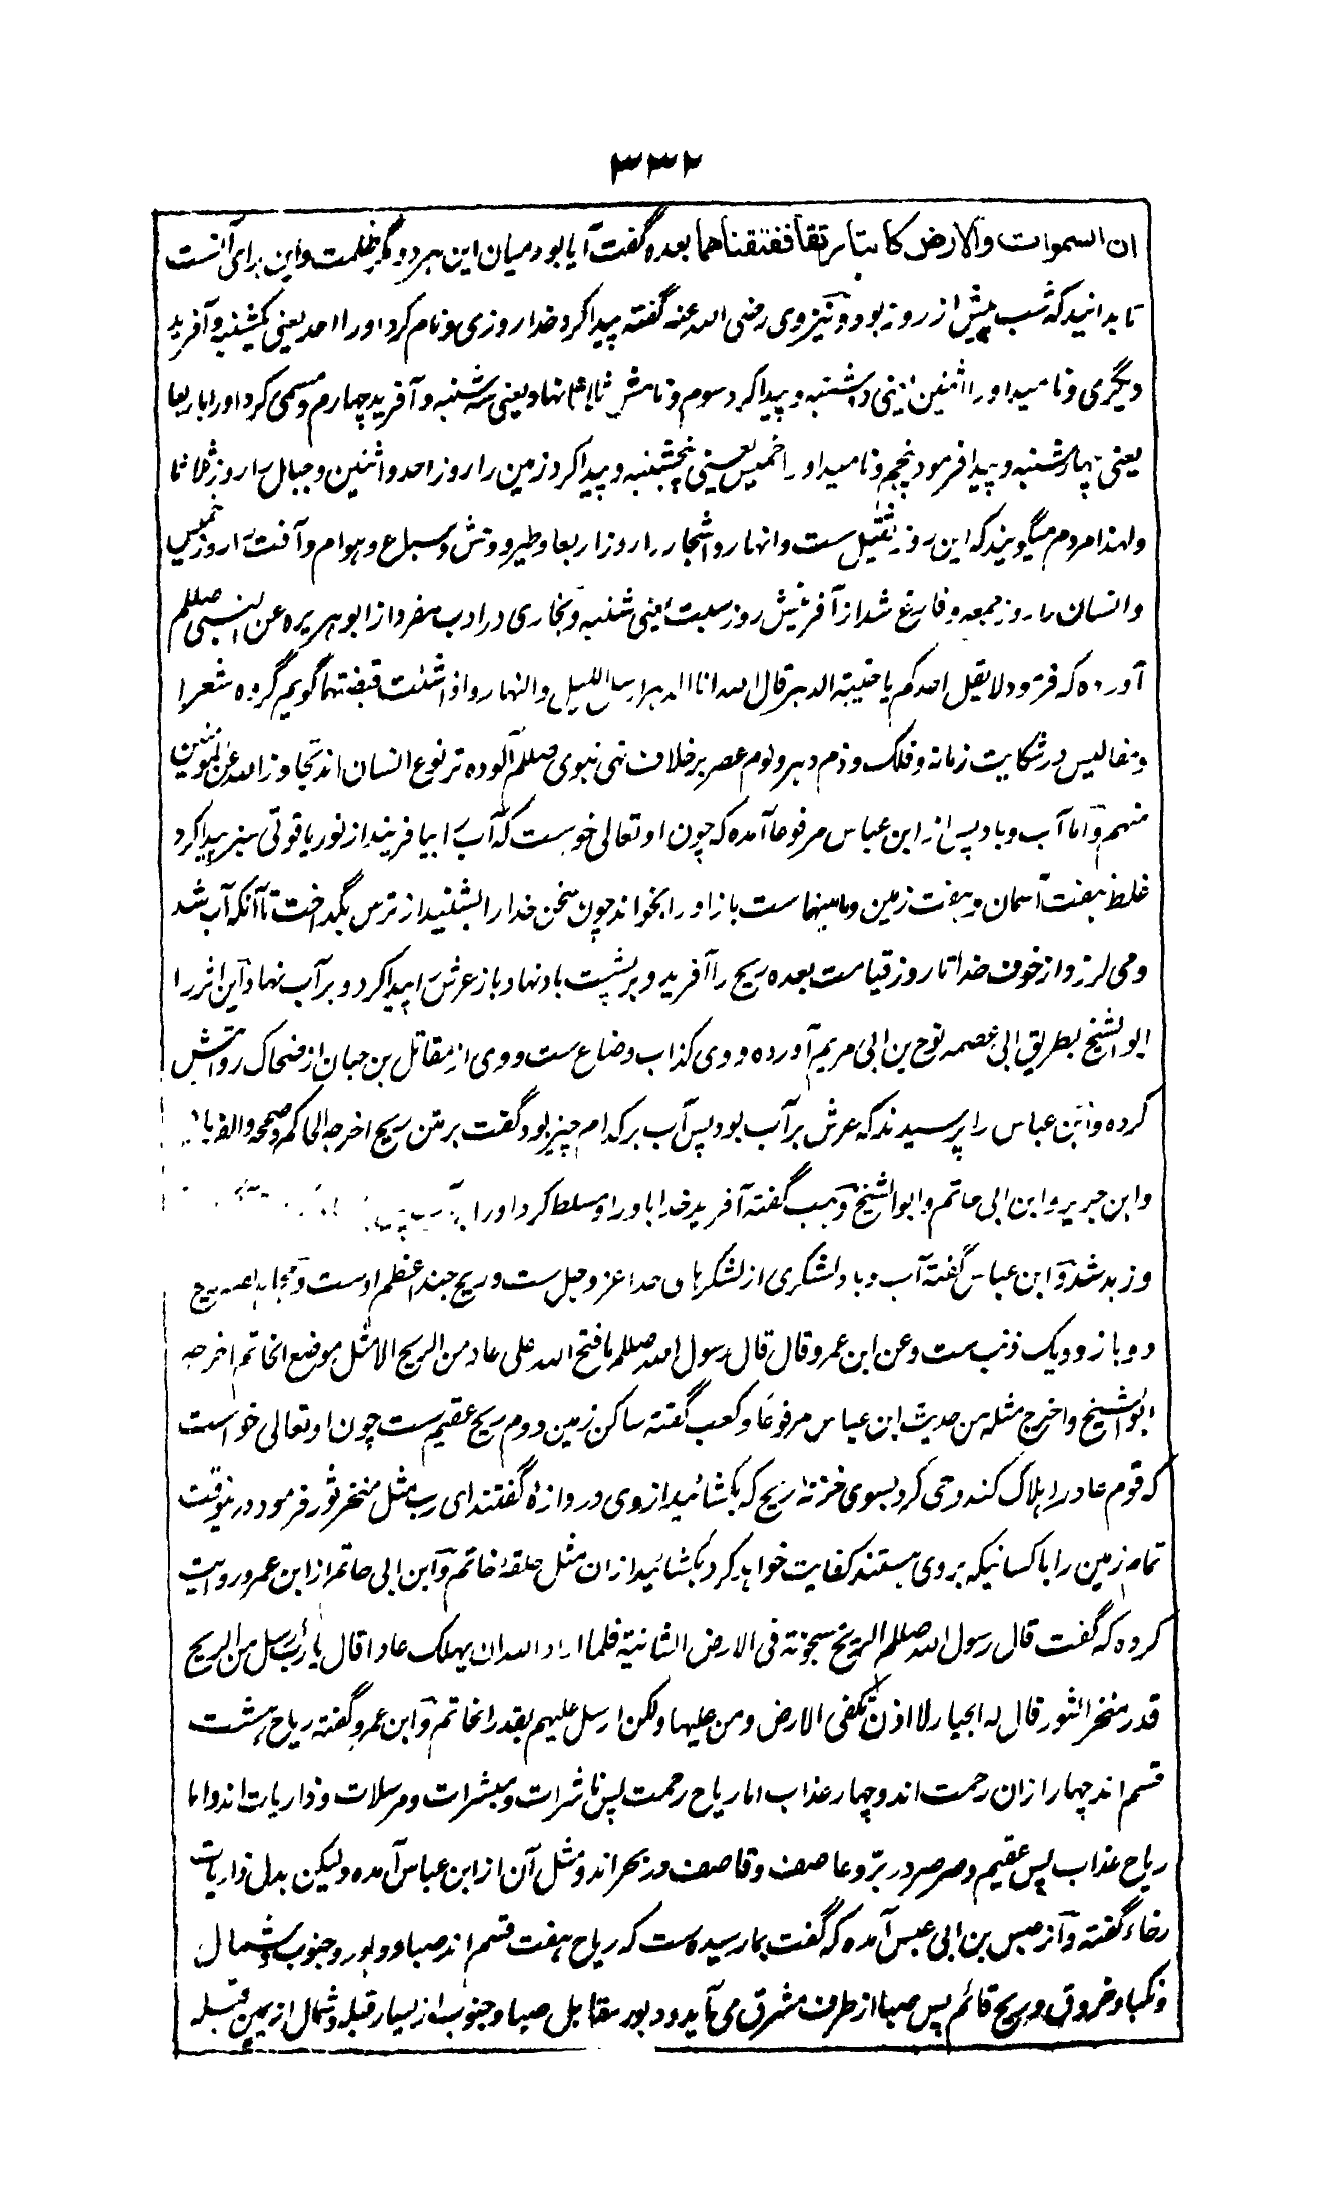 ۳۳۲
ان السموات والارض کانتا رتقا ففتقناهما بعده گفت آیا بود میان این هر دو مگر ظلمت و این برای آنست
تا بدانید که شب پیش از روز بود و نیز وی رضی الله عنه گفته پیدا کرد خدا روزی و نام کرد او را احد یعنی یکشنبه و آفرید
دیگری و نامید او را اثنین یعنی دوشنبه و پیدا کرد سوم و نامش ثلاثا نهاد یعنی سه شنبه و آفرید چهارم و مسمی کرد او را باربعا
یعنی چهارشنبه و پیدا فرمود پنجم و نامید او را خمیس یعنی پنجشنبه و پیدا کرد زمین را روز احد و اثنین و جبال را روز ثلاثا
ولهذا مردم میگویند که این روز ثقیل ست و انهار و اشجار را روز اربعا و طیر و وحش و سباع و هوام و آفت را روز خمیس
و انسان را روز جمعه و فارغ شد از آفرینش روز سبت یعنی شنبه و بخاری در ادب مفرد از ابو هریره عن النبی صللم
آورده که فرمود لا یقل احدکم یا خیبة الدهر قال الله انا الدهر ارسل اللیل والنهار واذا شئت قبضتهما گویم گروه شعرا
و مفالیس در شکایت زمانه و فلک و ذم دهر و لوم عصر بر خلاف نهی نبوی صللم آلوده تر نوع انسان اند تجاوز الله عن المؤمنین
منهم و اما آب و باد پس از ابن عباس مرفوعا آمده که چون او تعالی خواست که آب را بیافریند از نور یاقوتی سبز پیدا کرد
غلظ هفت آسمان و هفت زمین و ما بینهما ست باز او را بخواند چون سخن خدا را بشنید از ترس بگداخت تا آنکه آب شد
و می لرزد از خوف خدا تا روز قیامت بعده ریح را آفرید و بر پشت باد نهاد باز عرش را پیدا کرد و بر آب نهاد و این اثر را
ابو الشیخ بطریق ابی عصمه نوح بن ابی مریم آورده و وی کذاب وضاع ست و وی از مقاتل بن حبان از ضحاک روایتش
کرده و ابن عباس را پرسیدند که عرش بر آب بود پس آب بر کدام چیز بود گفت بر متن ریح اخرجه الحاکم و صححه
وابن جریر وابن ابی حاتم وابو الشیخ و وهب گفته آفرید خدا باد را و مسلط کرد او را
و زبد شد و ابن عباس گفته آب و باد لشکری از لشکرهای خدا عز و جل ست و ریح جند اعظم اوست و مجاهد
دو بازو و یک ذنب ست وعن ابن عمرو قال قال رسول الله صللم ما فتح الله علی عاد من الریح الا مثل موضع الخاتم اخرجه
ابو الشیخ واخرج مثله من حدیث ابن عباس مرفوعا و کعب گفته ساکن زمین دوم ریح عقیم ست چون او تعالی خواست
که قوم عاد را هلاک کند وحی کرد بسوی خزنهٔ ریح که بکشائید از وی دروازهٔ گفتند ای رب مثل منخر ثور فرمود درینوقت
تمام زمین را با کسانیکه بر وی هستند کفایت خواهد کرد بکشائید از ان مثل حلقهٔ خاتم و ابن ابی حاتم از ابن عمرو روایت
کرده که گفت قال رسول الله صللم الریح مسجونة فی الارض الثانیة فلما اراد الله ان یهلک عادا قال یا رب ارسل من الریح
قدر منخر الثور قال له الجبار لا اذن تکفی الارض ومن علیها ولکن ارسل علیهم بقدر الخاتم و ابن عمرو گفته ریاح هشت
قسم اند چهار ازان رحمت اند و چهار عذاب اما ریاح رحمت پس ناشرات و مبشرات و مرسلات و ذاریات اند و اما
ریاح عذاب پس عقیم و صرصر در بر و عاصف و قاصف در بحر اند و مثل آن از ابن عباس آمده و لیکن بدل ذاریات
رخاء گفته و از عبس بن ابی عبس آمده که گفت بما رسیده ست که ریاح هفت قسم اند صبا و دبور و جنوب و شمال
و نکبا و خروق و ریح قائم پس صبا از طرف مشرق می آید و دبور مقابل صبا و جنوب از یسار قبله و شمال از یمین قبله